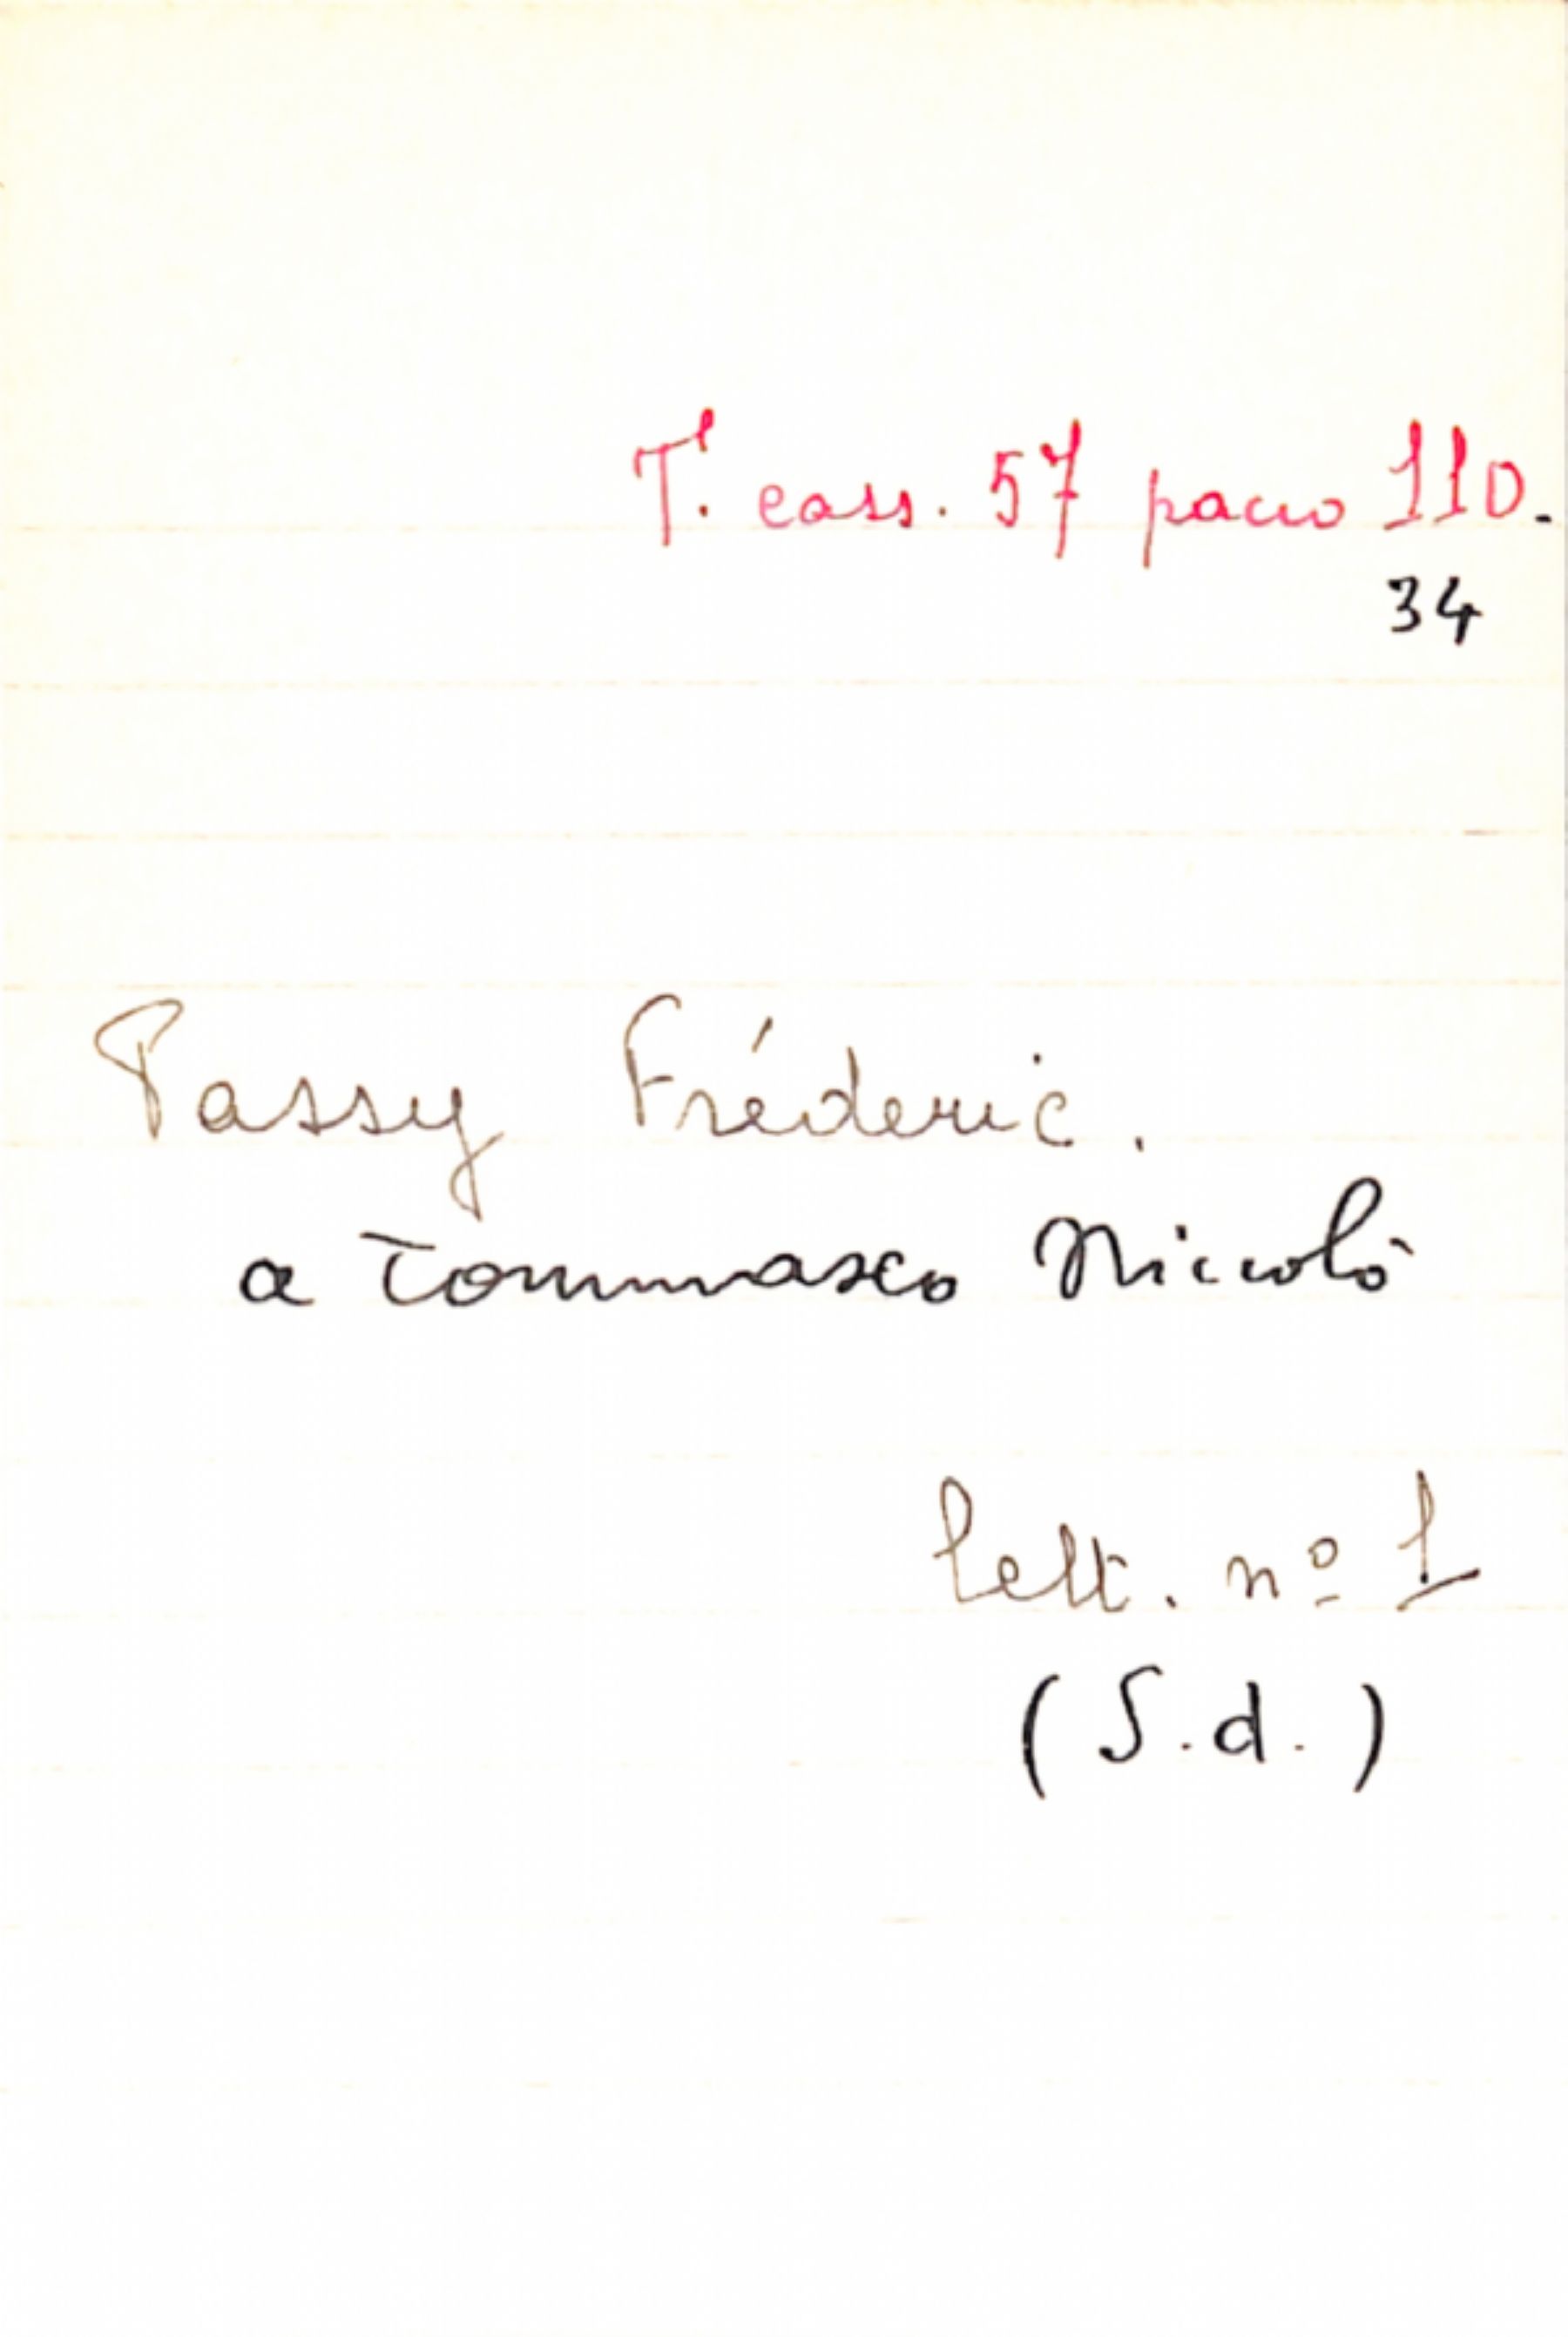 T. cass. 57 pacco 110.
34
Passy Fréderic.
a Tommaseo Niccolò
lett. nº 1
(S.d.)